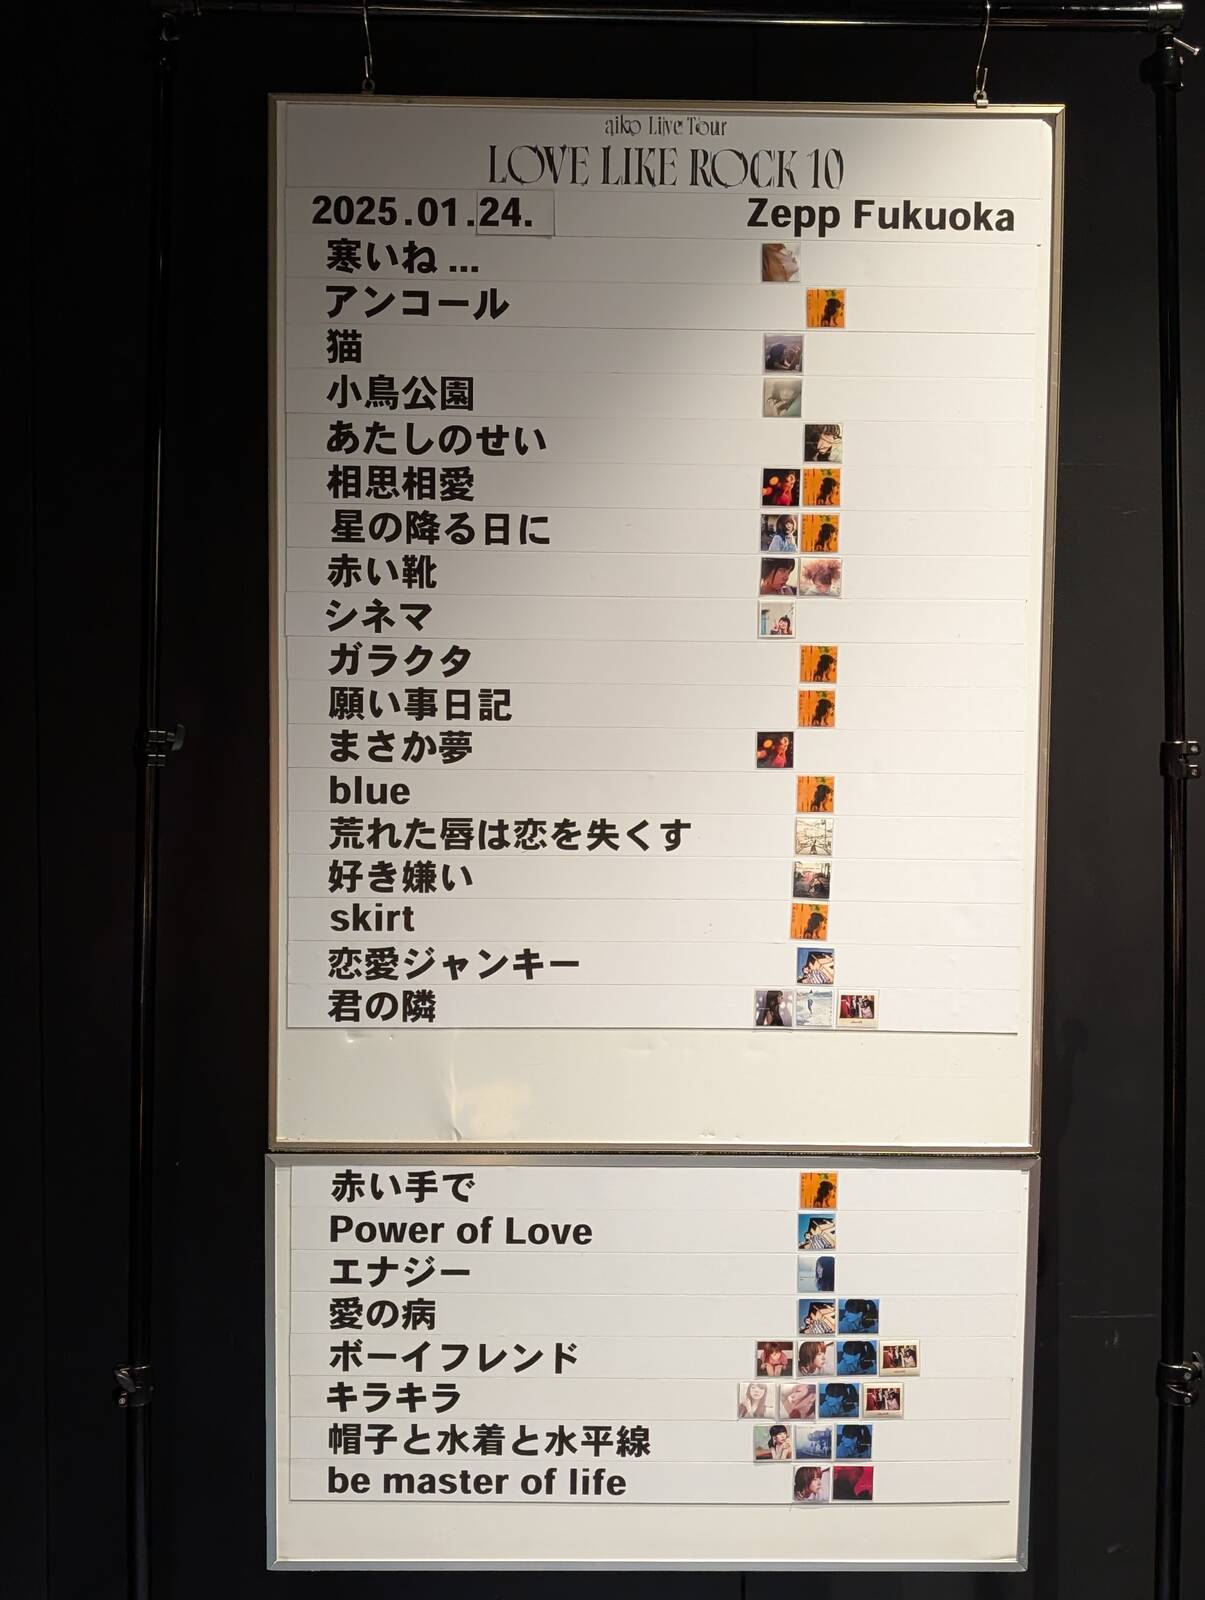 aiko Live Tour
LOVE LIKE ROCK 10
2025.01.24. Zepp Fukuoka
寒いね...
アンコール
猫
小鳥公園
あたしのせい
相思相愛
星の降る日に
赤い靴
シネマ
ガラクタ
願い事日記
まさか夢
blue
荒れた唇は恋を失くす
好き嫌い
skirt
恋愛ジャンキー
君の隣
赤い手で
Power of Love
エナジー
愛の病
ボーイフレンド
キラキラ
帽子と水着と水平線
be master of life